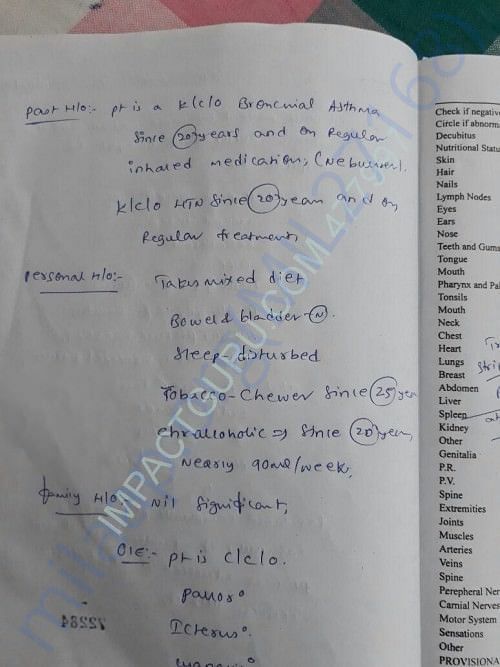 past H/o:- pt is a K/c/o Bronchial Asthma
since 20 years and on Regular
inhared medication, (Nebuliser).
K/c/o HTN since 20 years and on
Regular treatment,
personal H/o:- Takes mixed diet
Bowel & bladder - N.
Sleep - disturbed
Tobacco - Chewer Since 25 yea
chr alcoholic => Since 20 years,
Nearly 90ml/week,
family H/o:- Nil Significant,
O/E:- pt is C/c/o.
Pallor°
Icterus°
72284
IMPACTGURU.COM
Check if negative
Circle if abnorm
Decubitus
Nutritional Statu
Skin
Hair
Nails
Lymph Nodes
Eyes
Ears
Nose
Teeth and Gums
Tongue
Mouth
Pharynx and Pal
Tonsils
Mouth
Neck
Chest
Heart
Lungs
Breast
Abdomen
Liver
Spleen
Kidney
Other
Genitalia
P.R.
P.V.
Spine
Extremities
Joints
Muscles
Arteries
Veins
Spine
Perepheral Ner
Carnial Nerves
Motor System
Sensations
Other
PROVISIONA